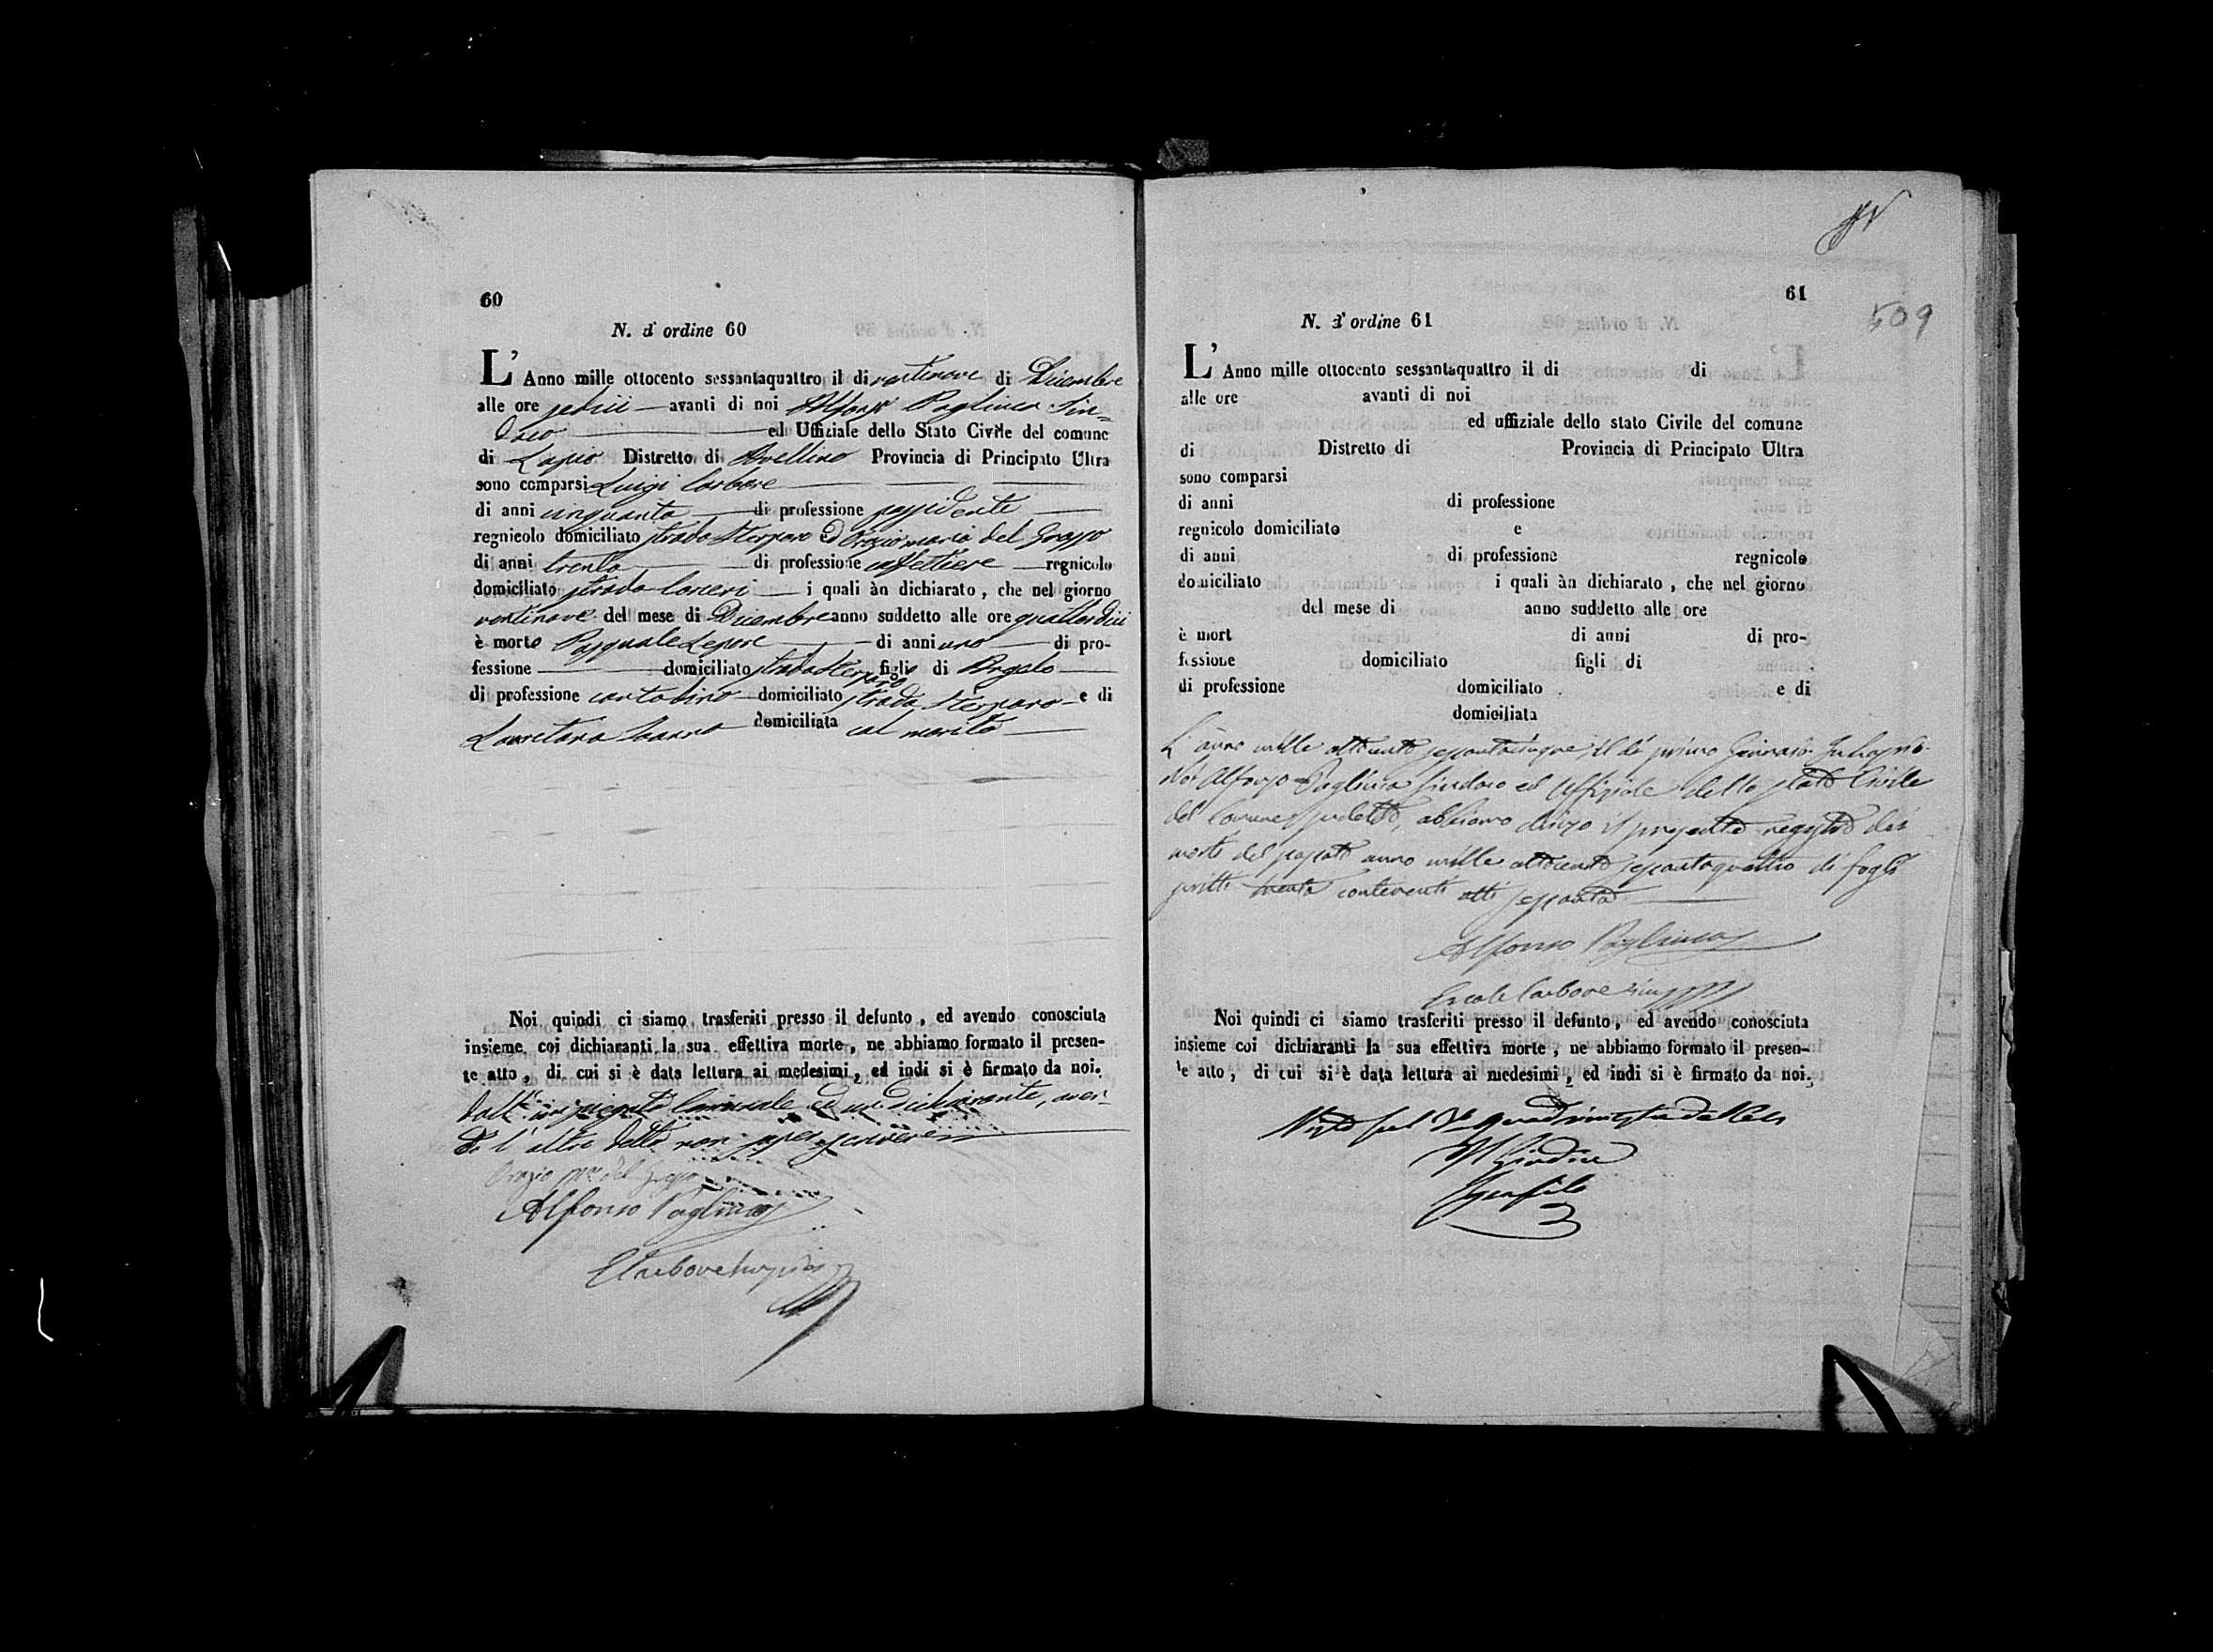 60
N. d' ordine 60
L' Anno mille ottocento sessantaquattro il di ventinove di Dicembre
alle ore sedici avanti di noi Alfonso Pagliuca Sin=
daco ed Uffiziale dello Stato Civile del comune
di Lapio Distretto di Avellino Provincia di Principato Ultra
sono comparsi Luigi Carbone
di anni cinquanta di professione possidente
regnicolo domiciliato strada Sterparo ed Orazio maria del Grosso
di anni trenta di professione caffettiere regnicolo
domiciliato strada i quali àn dichiarato, che nel giorno
ventinove del mese di Dicembre anno suddetto alle ore quattordici
è morto Pasquale Lepore di anni uno di pro-
fessione domiciliato strada Sterparo figlio di Angelo
di professione contadino domiciliato strada Sterparo e di
domiciliata col marito
Noi quindi ci siamo trasferiti presso il defunto, ed avendo conosciuta
insieme coi dichiaranti la sua effettiva morte, ne abbiamo formato il presen-
te atto, di cui si è data lettura ai medesimi, ed indi si è firmato da noi.
dall' impiegato Comunale ed un dichiarante, aven-
do l' altro detto non saper scrivere
Orazio Mª del Grosso
Alfonso Pagliuca
61
509
N. d' ordine 61
L' Anno mille ottocento sessantaquattro il di di
alle ore avanti di noi
ed uffiziale dello stato Civile del comune
di Distretto di Provincia di Principato Ultra
sono comparsi
di anni di professione
regnicolo domiciliato e
di anni di professione regnicolo
domiciliato i quali àn dichiarato, che nel giorno
del mese di anno suddetto alle ore
è mort di anni di pro-
fessione domiciliato figli di
di professione domiciliato e di
domiciliata
L' anno mille ottocento sessantacinque, il dì primo Gennaio. In Lapio
Noi Alfonso Pagliuca Sindaco ed Uffiziale dello Stato Civile
del Comune suddetto, abbiamo chiuso il presente registro dei
morti del passato anno mille ottocento sessantaquattro di fogli
scritti trenta contenenti atti sessanta
Alfonso Pagliuca
Ercole Carbone
Noi quindi ci siamo trasferiti presso il defunto, ed avendo conosciuta
insieme coi dichiaranti la sua effettiva morte, ne abbiamo formato il presen-
te atto, di cui si è data lettura ai medesimi, ed indi si è firmato da noi.
Visto quadrimestre
Il Giudice